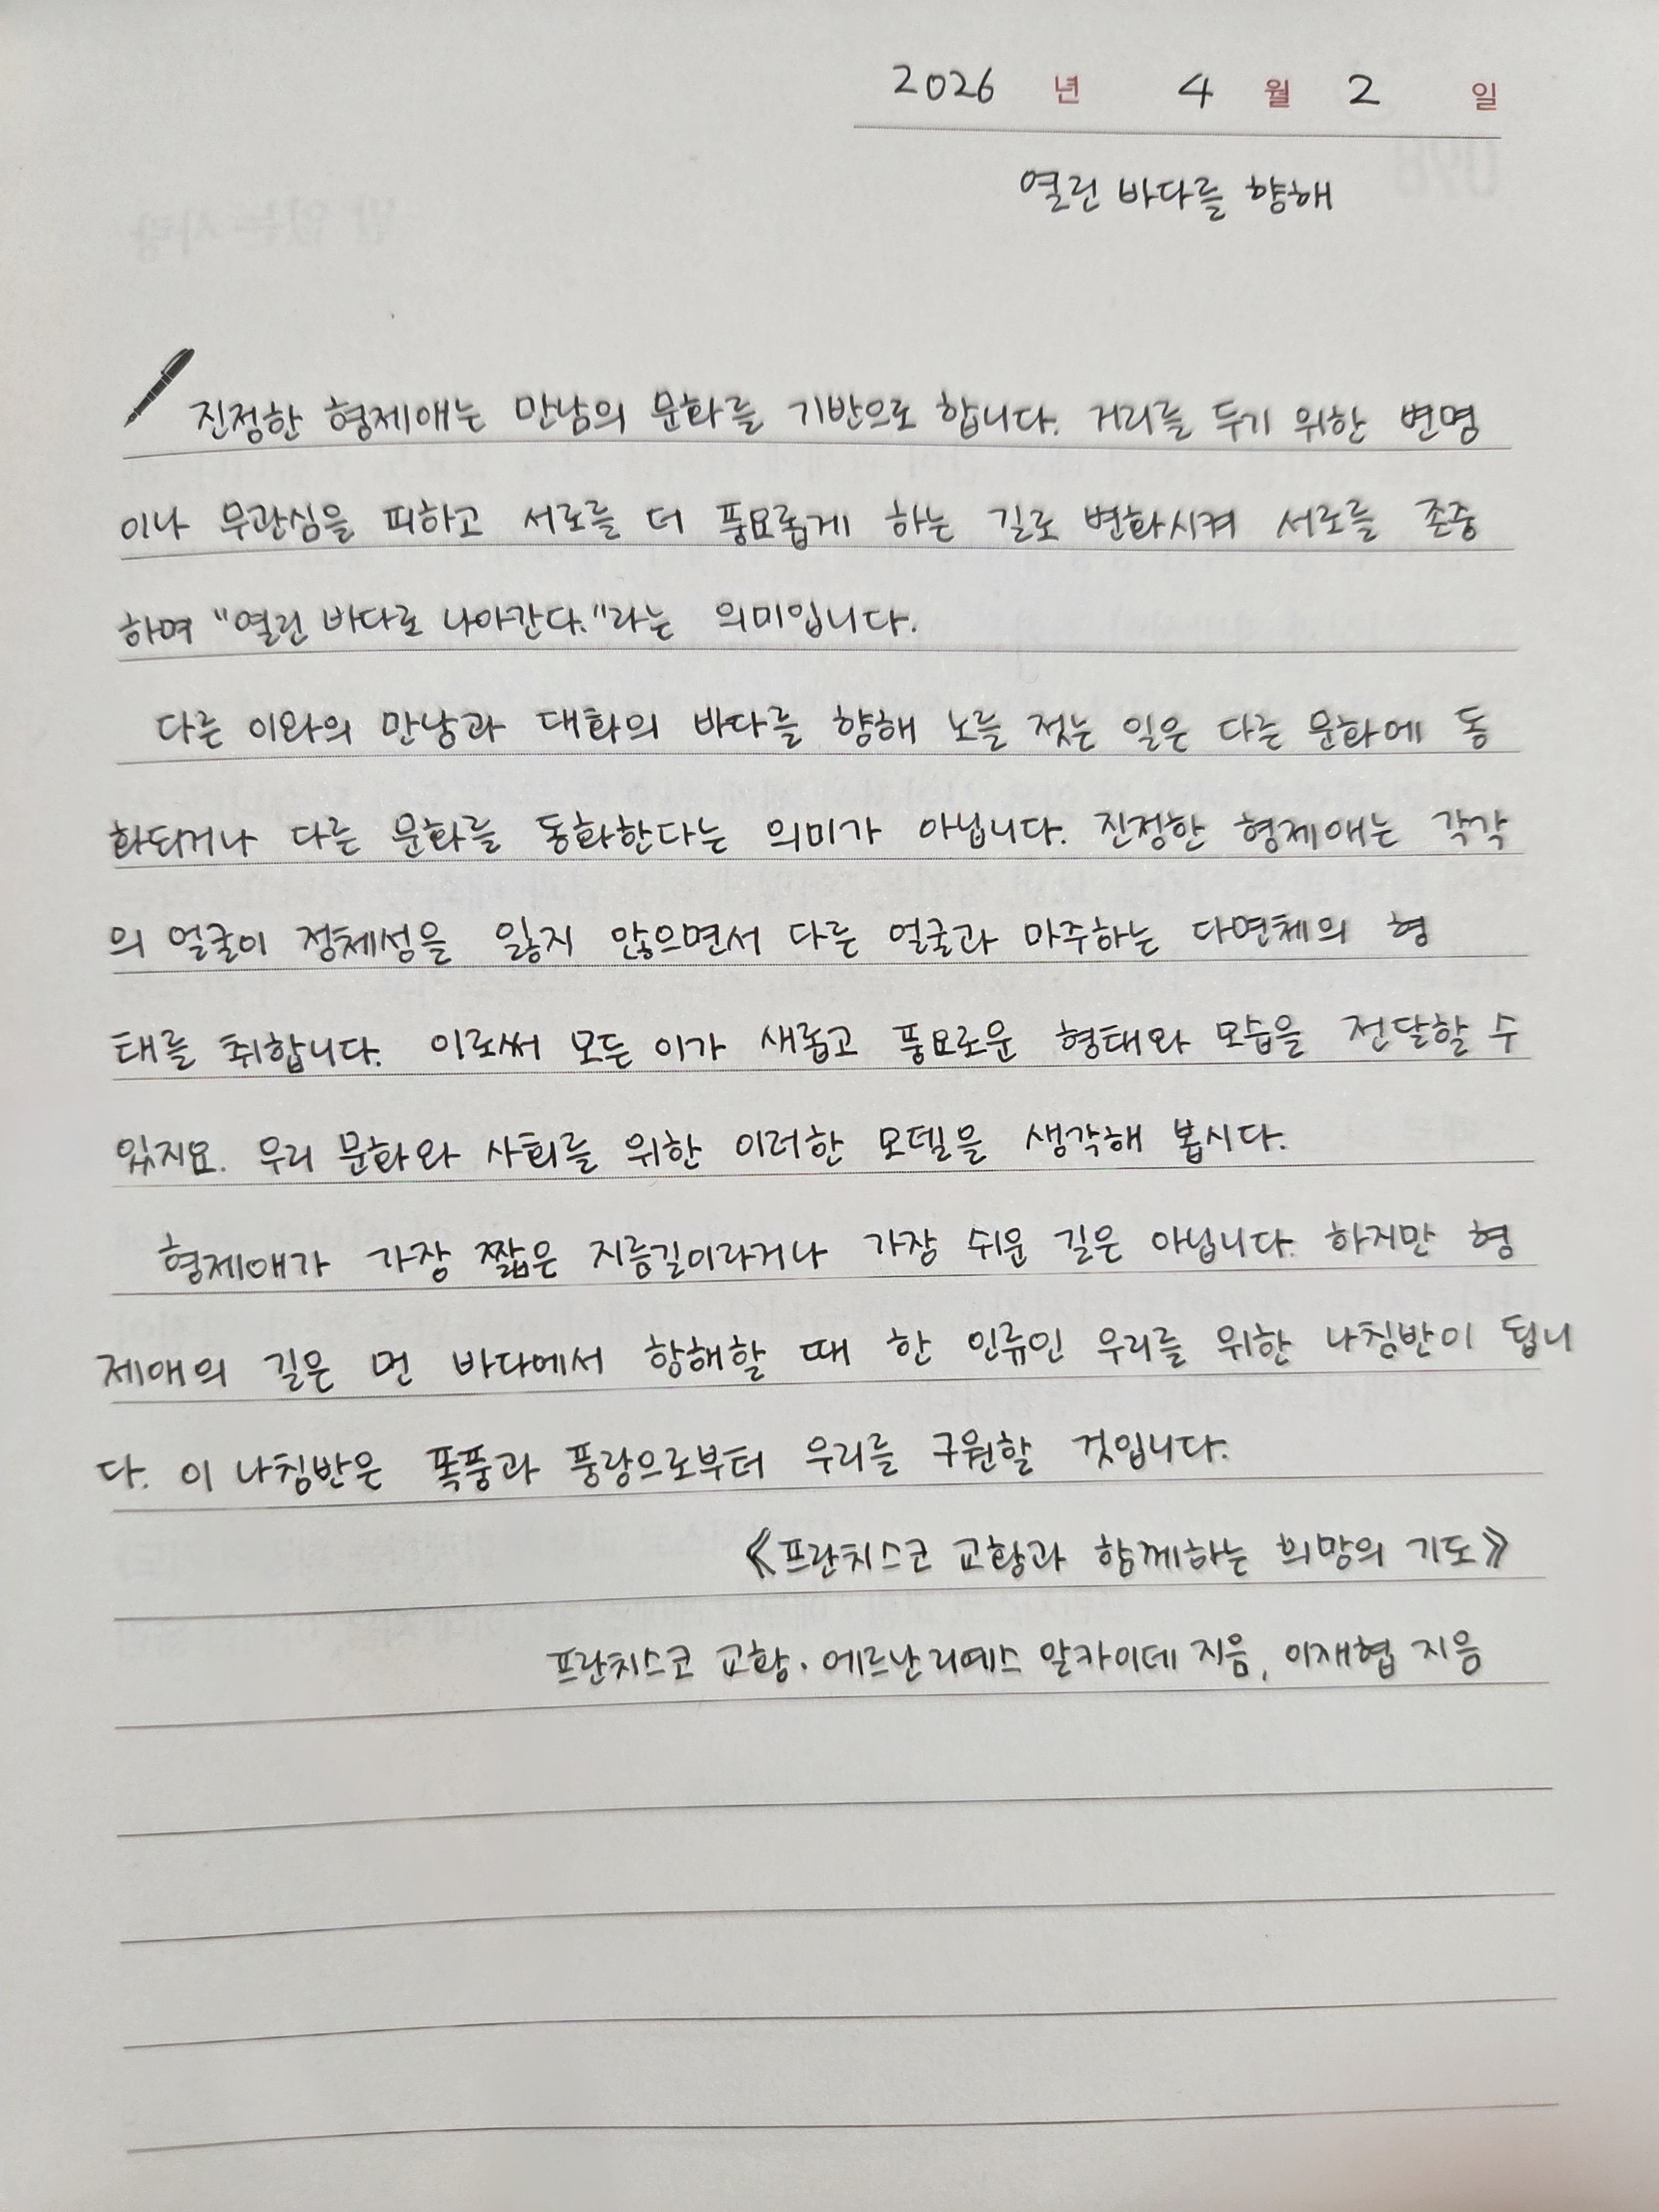 2026 년 4 월 2 일
열린 바다를 향해
진정한 형제애는 만남의 문화를 기반으로 합니다. 거리를 두기 위한 변명
이나 무관심을 피하고 서로를 더 풍요롭게 하는 길로 변화시켜 서로를 존중
하며 "열린 바다로 나아간다."라는 의미입니다.
다른 이와의 만남과 대화의 바다를 향해 노를 젓는 일은 다른 문화에 동
화되거나 다른 문화를 동화한다는 의미가 아닙니다. 진정한 형제애는 각각
의 얼굴이 정체성을 잃지 않으면서 다른 얼굴과 마주하는 다면체의 형
태를 취합니다. 이로써 모든 이가 새롭고 풍요로운 형태와 모습을 전달할 수
있지요. 우리 문화와 사회를 위한 이러한 모델을 생각해 봅시다.
형제애가 가장 짧은 지름길이라거나 가장 쉬운 길은 아닙니다. 하지만 형
제애의 길은 먼 바다에서 항해할 때 한 인류인 우리를 위한 나침반이 됩니
다. 이 나침반은 폭풍과 풍랑으로부터 우리를 구원할 것입니다.
《프란치스코 교황과 함께하는 희망의 기도》
프란치스코 교황·에르난 리예스 알카이데 지음, 이재협 지음